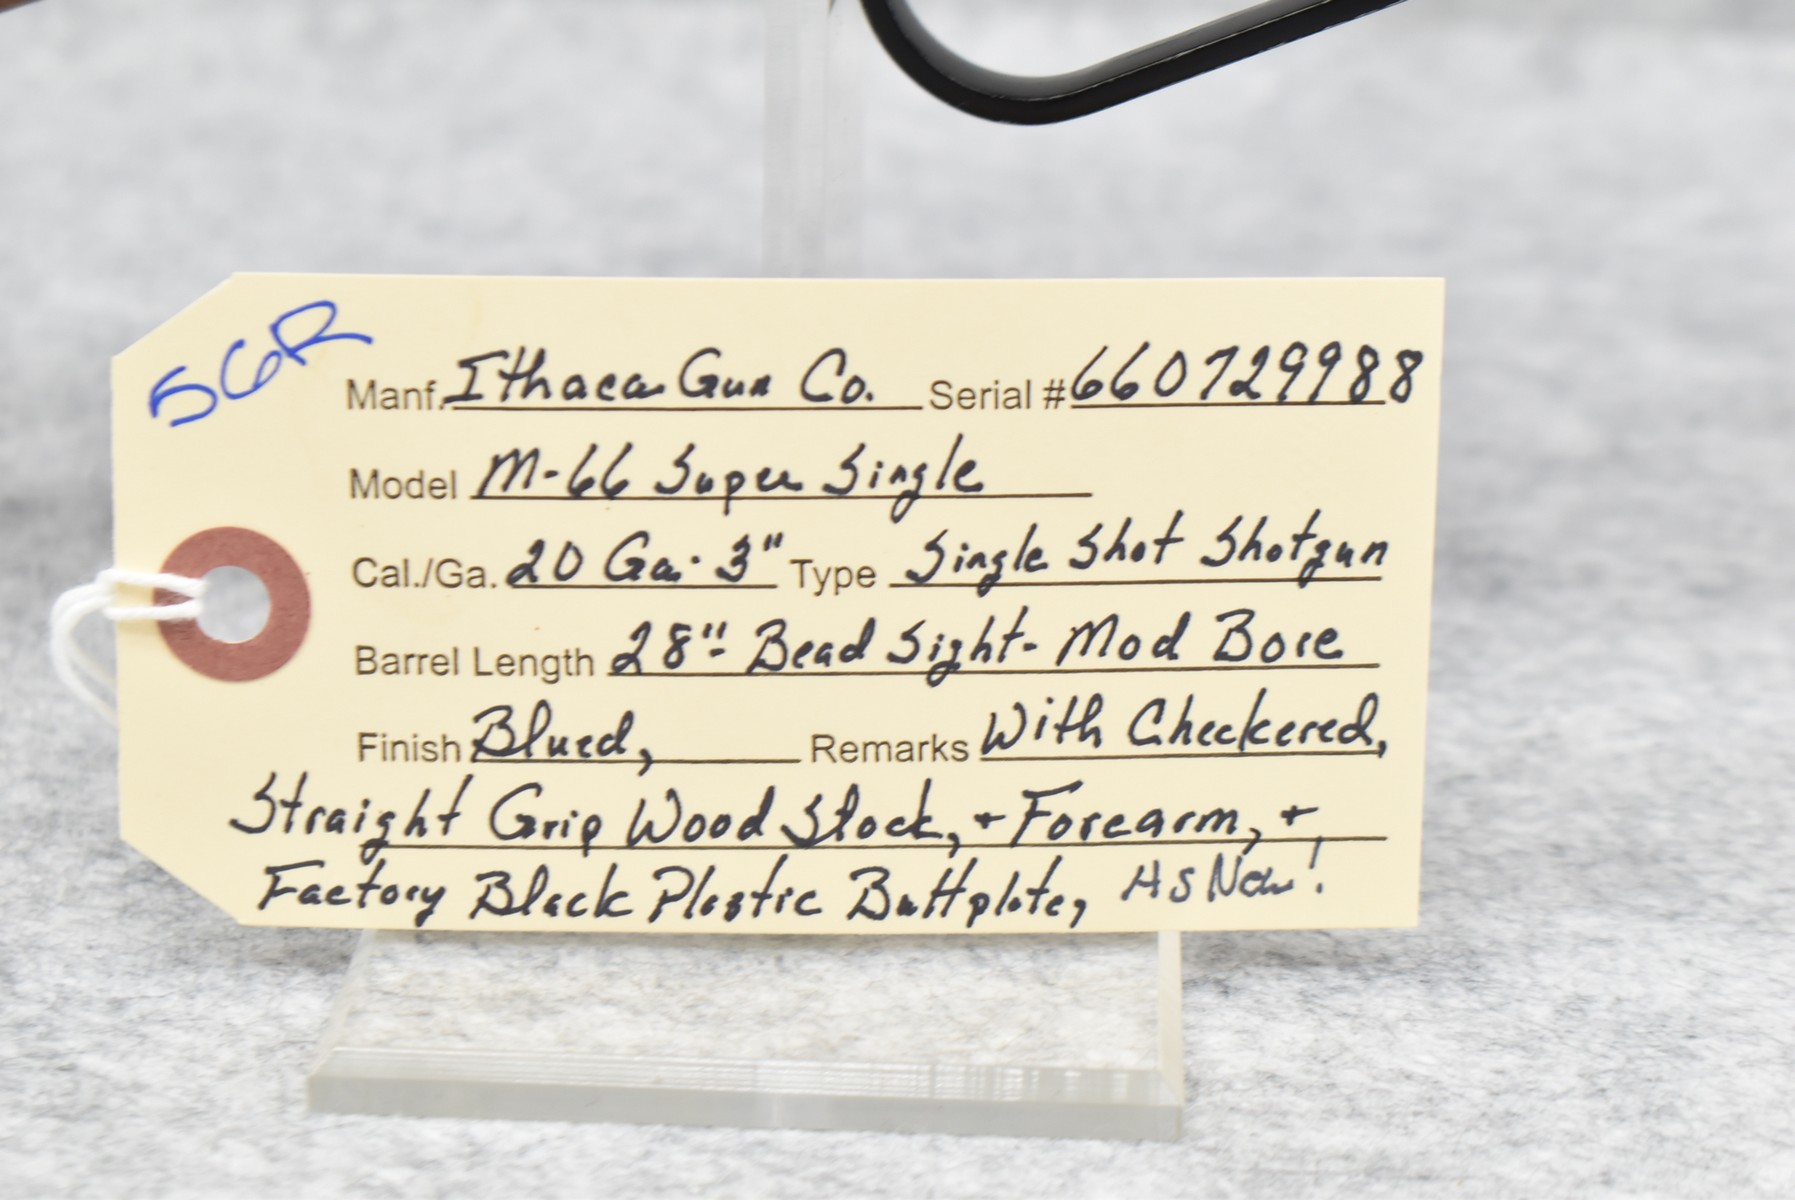 56R
Manf. Ithaca Gun Co. Serial # 660729988
Model M-66 Super Single
Cal./Ga. 20 Ga. 3" Type Single Shot Shotgun
Barrel Length 28"- Bead Sight- Mod Bore
Finish Blued, Remarks With Checkered,
Straight Grip Wood Stock, + Forearm, +
Factory Black Plastic Buttplate, AS New!